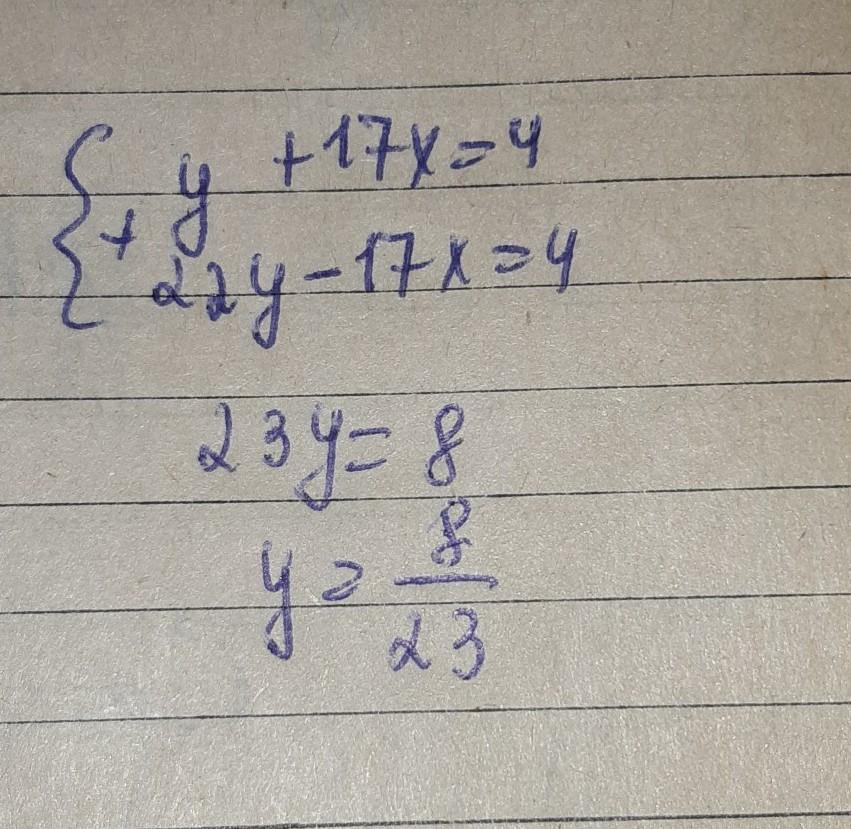 { y + 17x = 4
+ 22y - 17x = 4
23y = 8
y = 8/23